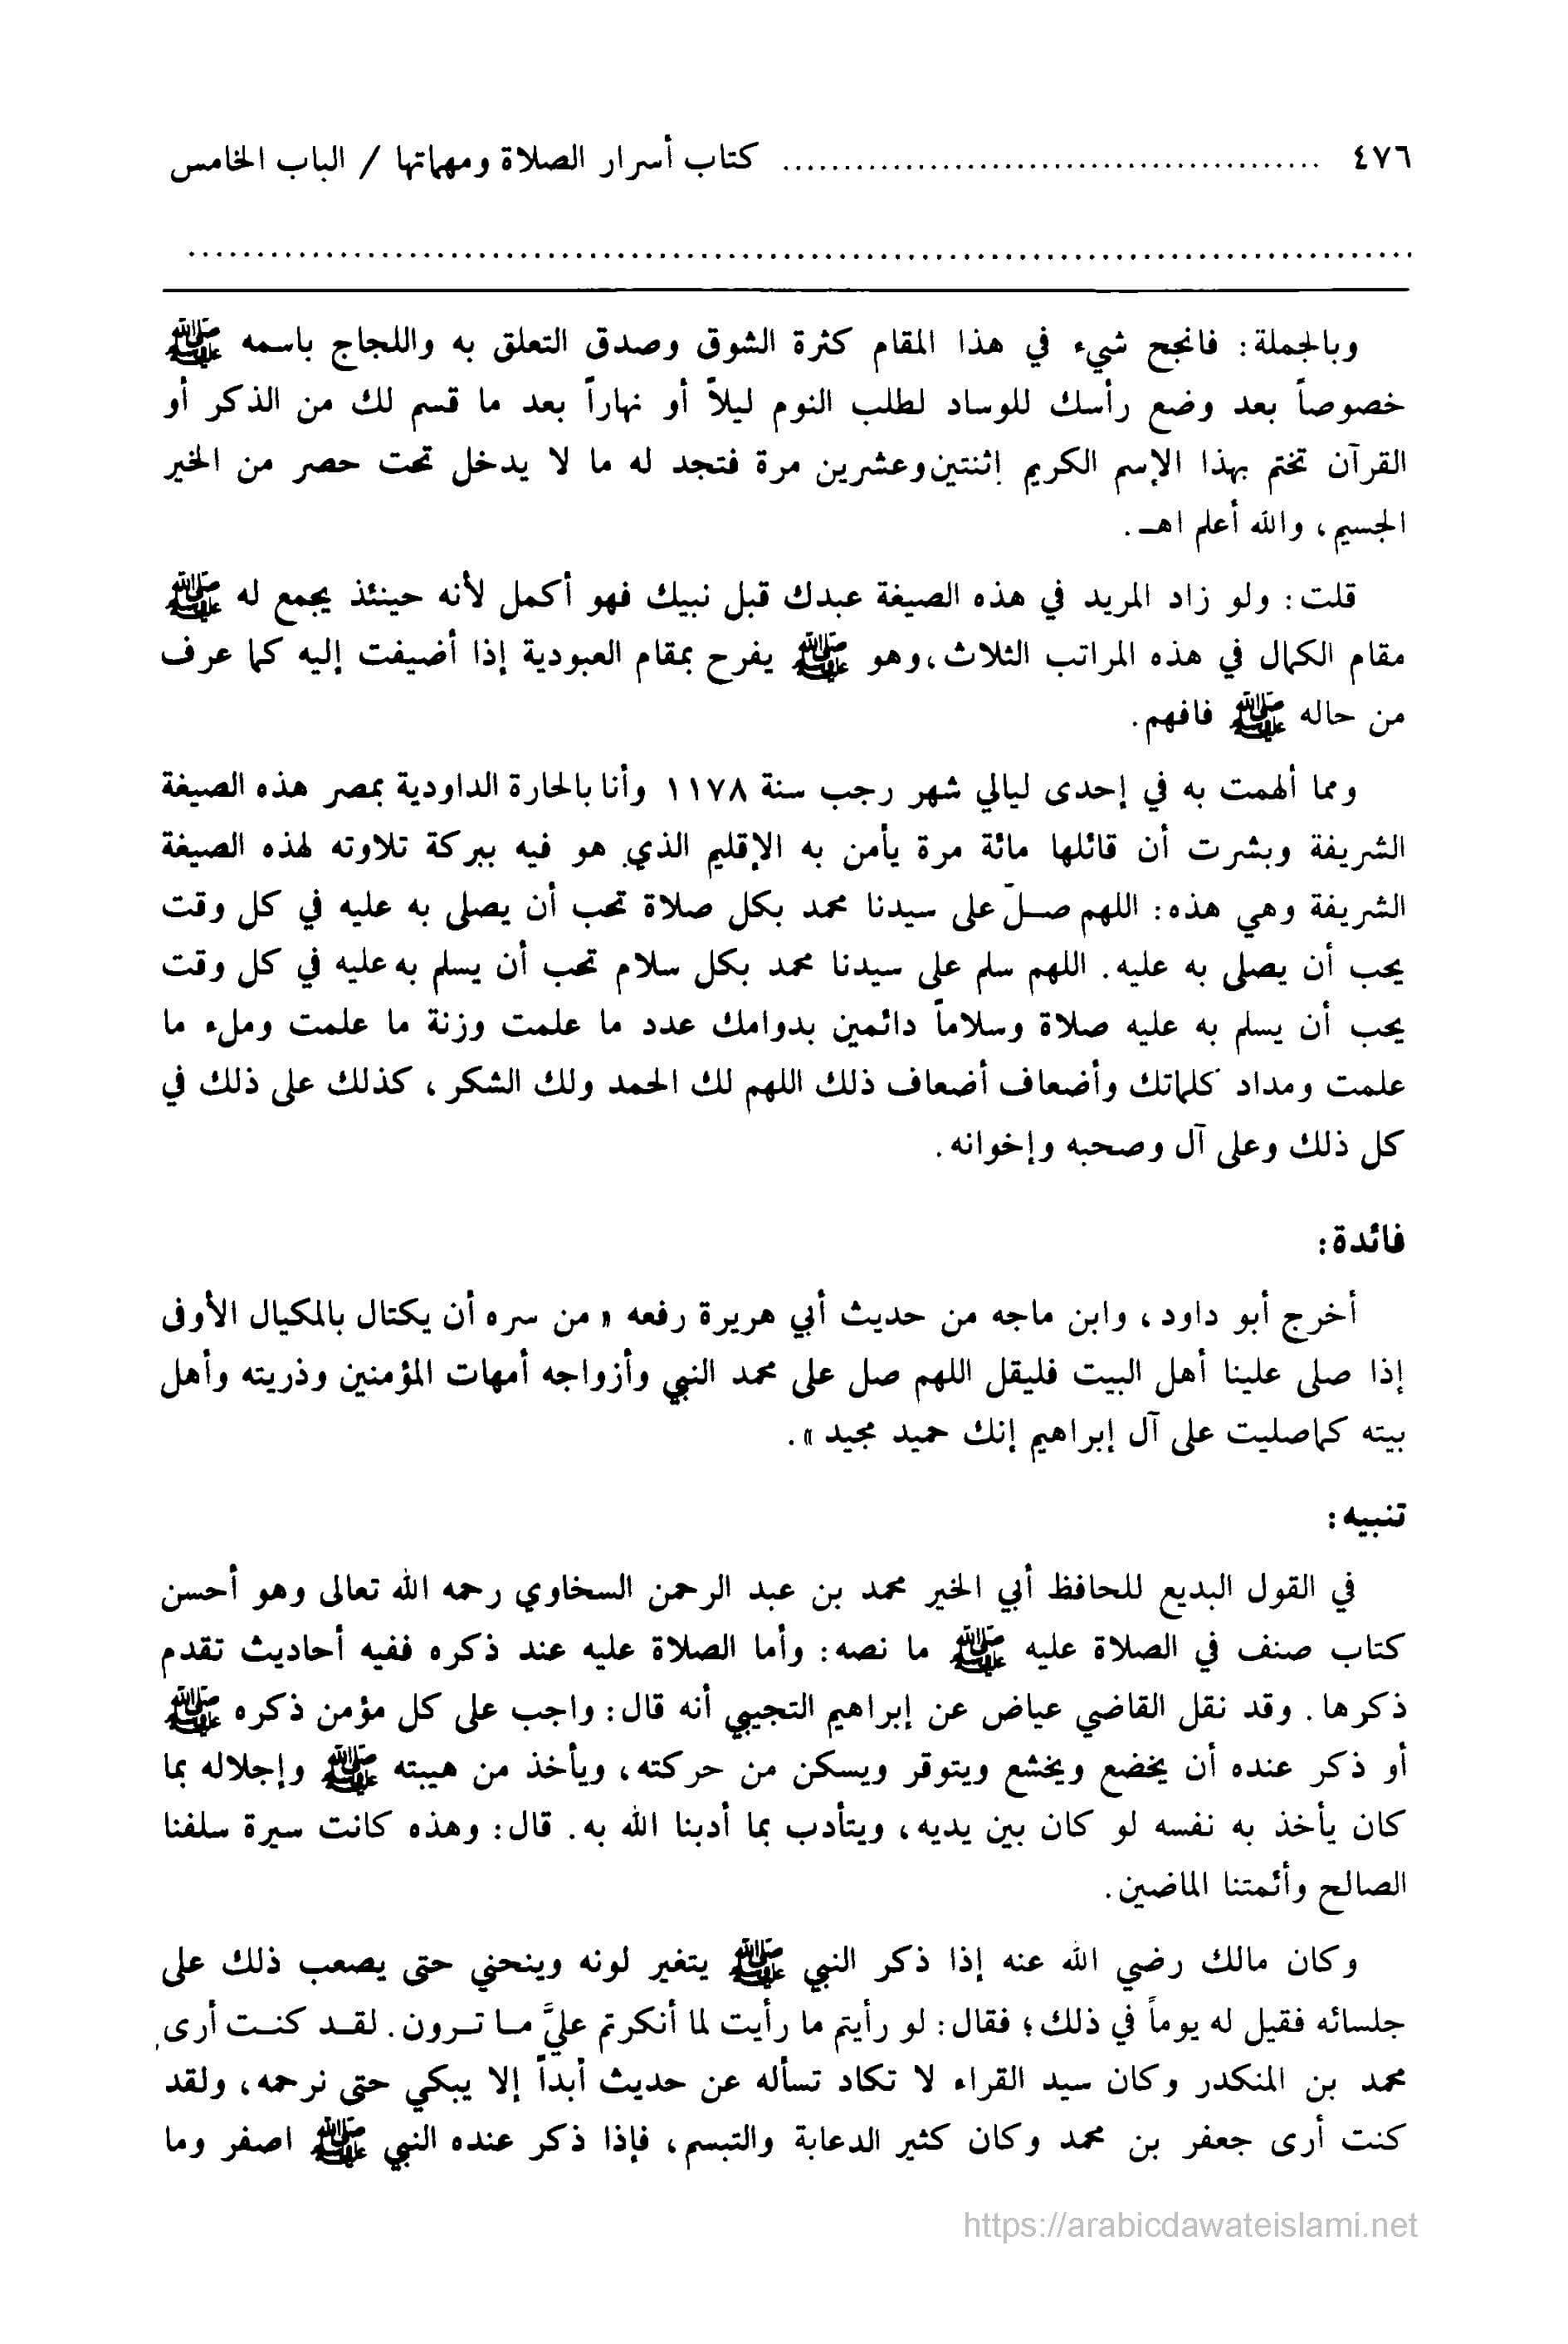 ٤٧٦ ................................................ كتاب أسرار الصلاة ومهماتها / الباب الخامس
................................................................................
وبالجملة: فانجح شيء في هذا المقام كثرة الشوق وصدق التعلق به واللجاج باسمه ﷺ
خصوصاً بعد وضع رأسك للوساد لطلب النوم ليلاً أو نهاراً بعد ما قسم لك من الذكر أو
القرآن تختم بهذا الإسم الكريم إثنتين وعشرين مرة فتجد له ما لا يدخل تحت حصر من الخير
الجسيم، والله أعلم اهـ.
قلت: ولو زاد المريد في هذه الصيغة عبدك قبل نبيك فهو أكمل لأنه حينئذ يجمع له ﷺ
مقام الكمال في هذه المراتب الثلاث، وهو ﷺ يفرح بمقام العبودية إذا أضيفت إليه كما عرف
من حاله ﷺ فافهم.
ومما ألهمت به في إحدى ليالي شهر رجب سنة ١١٧٨ وأنا بالحارة الداودية بمصر هذه الصيغة
الشريفة وبشرت أن قائلها مائة مرة يأمن به الإقليم الذي هو فيه ببركة تلاوته لهذه الصيغة
الشريفة وهي هذه: اللهم صلّ على سيدنا محمد بكل صلاة تحب أن يصلى به عليه في كل وقت
يحب أن يصلى به عليه. اللهم سلم على سيدنا محمد بكل سلام تحب أن يسلم به عليه في كل وقت
يحب أن يسلم به عليه صلاة وسلاماً دائمين بدوامك عدد ما علمت وزنة ما علمت وملء ما
علمت ومداد كلماتك وأضعاف أضعاف ذلك اللهم لك الحمد ولك الشكر، كذلك على ذلك في
كل ذلك وعلى آل وصحبه وإخوانه.
فائدة:
أخرج أبو داود، وابن ماجه من حديث أبي هريرة رفعه «من سره أن يكتال بالمكيال الأوفى
إذا صلى علينا أهل البيت فليقل اللهم صل على محمد النبي وأزواجه أمهات المؤمنين وذريته وأهل
بيته كما صليت على آل إبراهيم إنك حميد مجيد».
تنبيه:
في القول البديع للحافظ أبي الخير محمد بن عبد الرحمن السخاوي رحمه الله تعالى وهو أحسن
كتاب صنف في الصلاة عليه ﷺ ما نصه: وأما الصلاة عليه عند ذكره ففيه أحاديث تقدم
ذكرها. وقد نقل القاضي عياض عن إبراهيم التجيبي أنه قال: واجب على كل مؤمن ذكره ﷺ
أو ذكر عنده أن يخضع ويخشع ويتوقر ويسكن من حركته، ويأخذ من هيبته ﷺ وإجلاله بما
كان يأخذ به نفسه لو كان بين يديه، ويتأدب بما أدبنا الله به. قال: وهذه كانت سيرة سلفنا
الصالح وأئمتنا الماضين.
وكان مالك رضي الله عنه إذا ذكر النبي ﷺ يتغير لونه وينحني حتى يصعب ذلك على
جلسائه فقيل له يوماً في ذلك؛ فقال: لو رأيتم ما رأيت لما أنكرتم عليَّ ما ترون. لقد كنت أرى
محمد بن المنكدر وكان سيد القراء لا تكاد تسأله عن حديث أبداً إلا يبكي حتى نرحمه، ولقد
كنت أرى جعفر بن محمد وكان كثير الدعابة والتبسم، فإذا ذكر عنده النبي ﷺ اصفر وما
https://arabicdawateislami.net